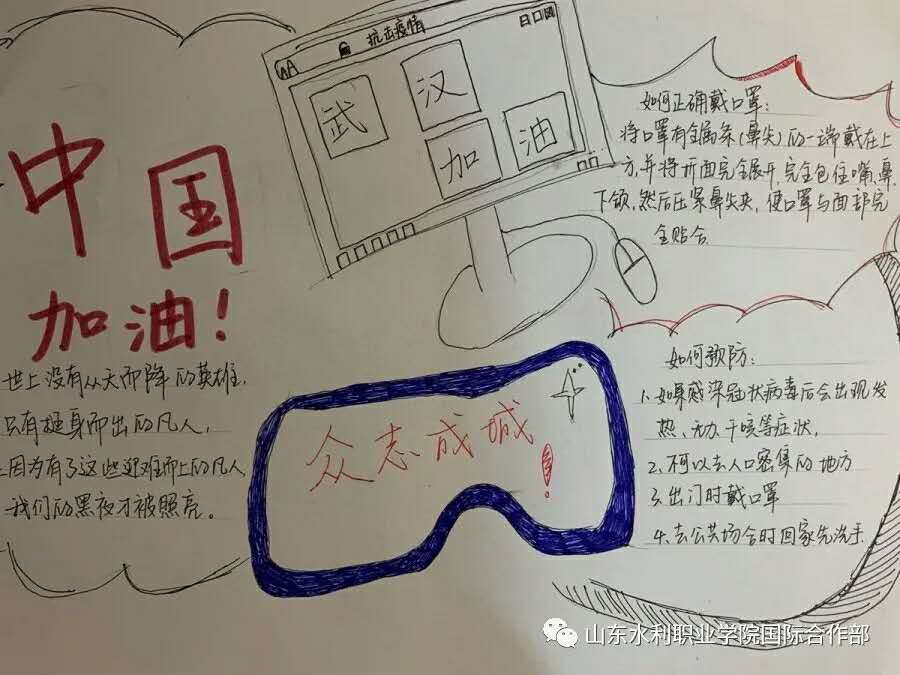 中国
加油！
世上没有从天而降的英雄，
只有挺身而出的凡人，
因为有了这些迎难而上的凡人
我们的黑夜才被照亮。
抗击疫情
武汉
加油
众志成城！
如何正确戴口罩：
将口罩有金属条（鼻尖）的一端戴在上
方，并将开面完全展开，完全包住嘴、鼻、
下颌，然后压紧鼻尖夹，使口罩与面部完
全贴合
如何预防：
1、如果感染冠状病毒后会出现发
热、无力、干咳等症状，
2、不可以去人口密集的地方
3、出门时戴口罩
4、去公共场合时回家先洗手
山东水利职业学院国际合作部